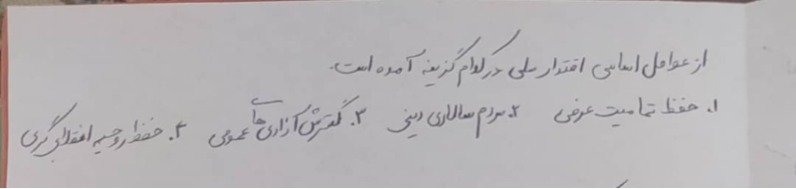 از عوامل اساسی اقتدار ملی در کدام گزینه آمده است.
۱. حفظ تمامیت عرضی ۲. مردم سالاری دینی ۳. گسترش آزادی‌های عمومی ۴. حفظ روحیه انقلابی گری